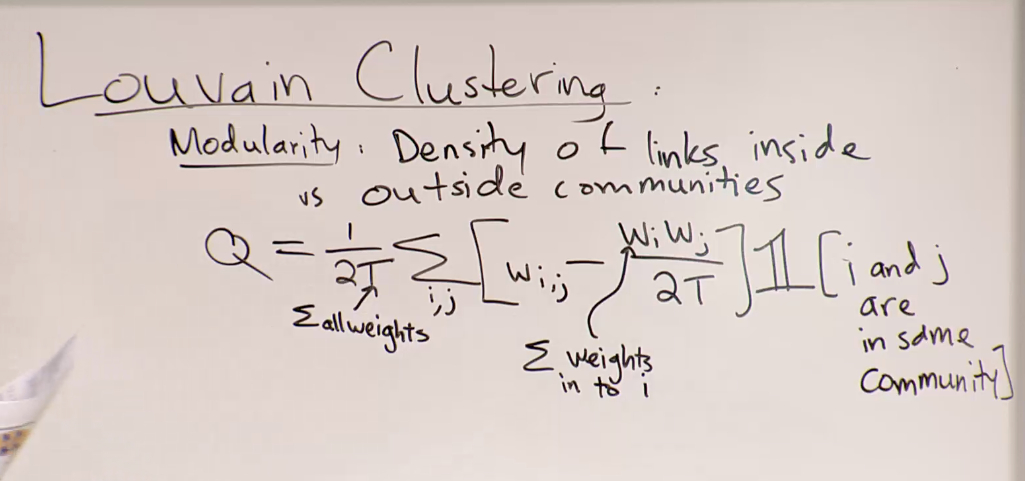 Louvain Clustering :
Modularity : Density of links inside
vs outside communities
Q = 1/2T Σ i,j [ w i,j − W i W j / 2T ] 𝟙 [ i and j
are
in same
community ]
Σ all weights
Σ weights
in to i